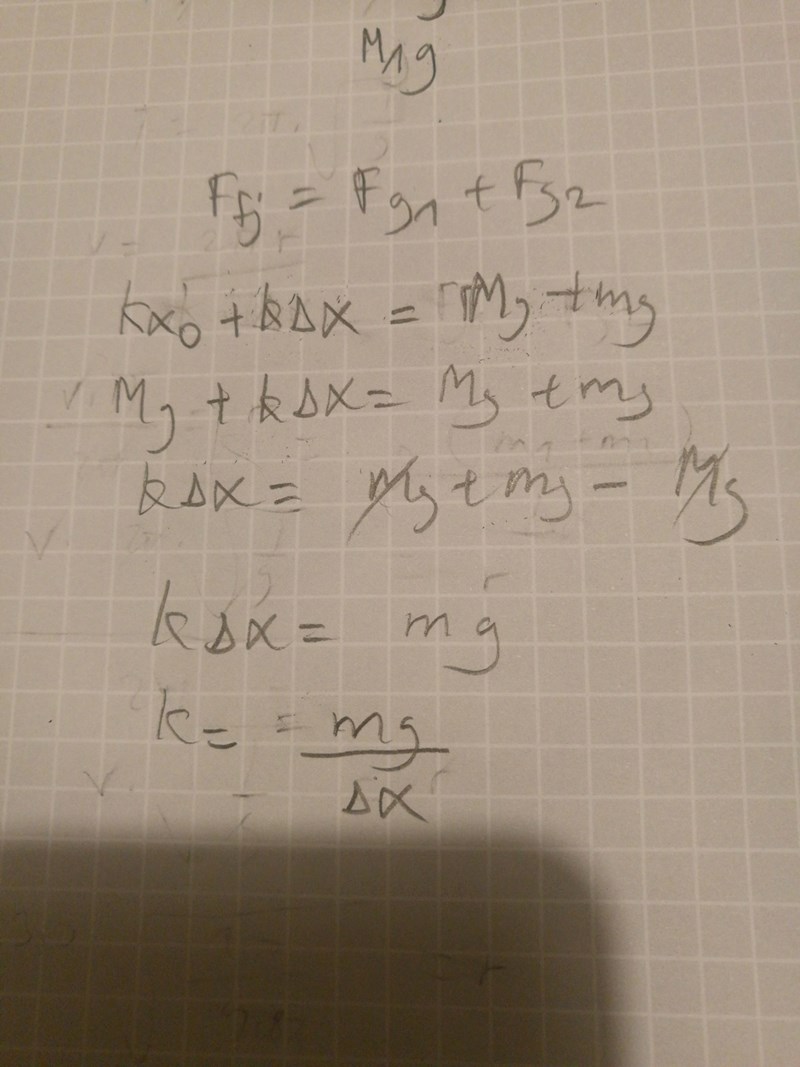 M1g
Ffj = Fg1 + Fg2
kx0 + kΔx = Mg + mg
Mg + kΔx = Mg + mg
kΔx = Mg + mg - Mg
kΔx = mg
k = = mg
Δx